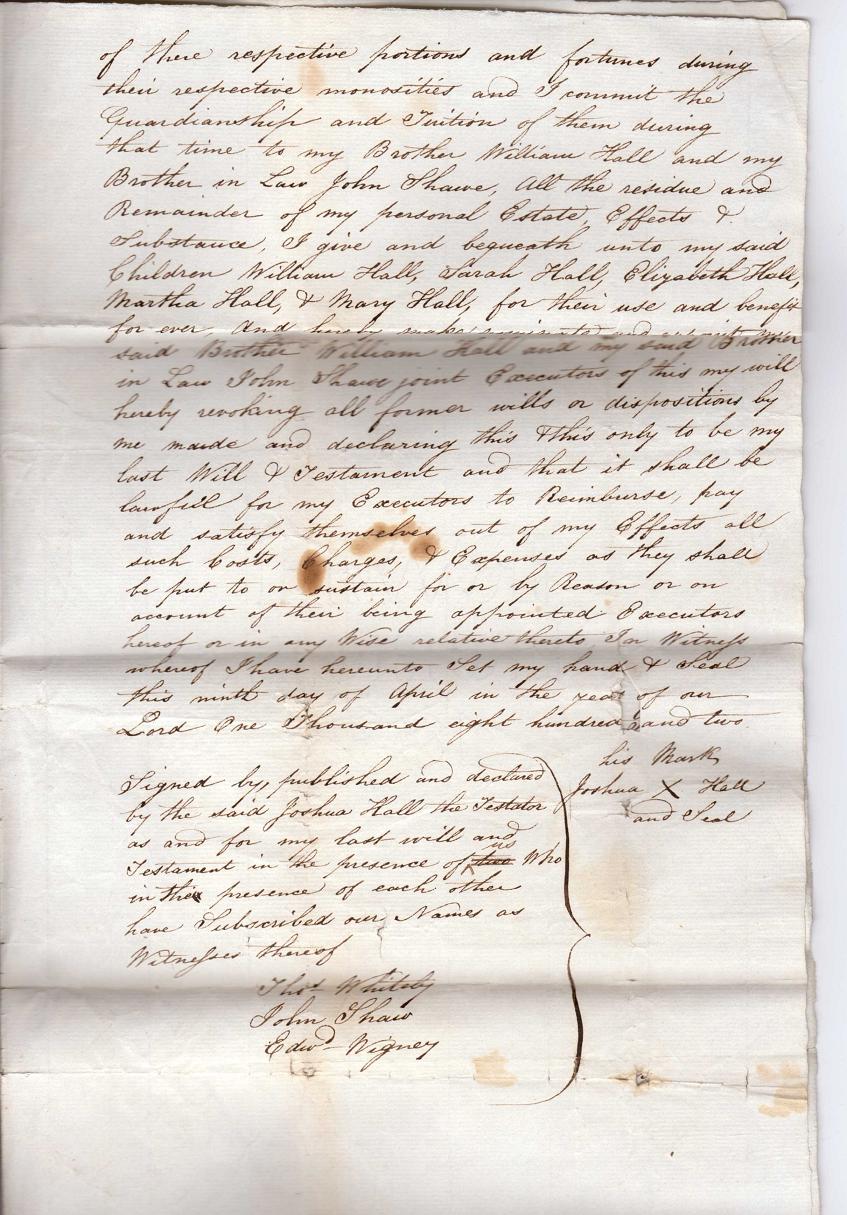 of there respective portions and fortunes during
their respective monosities and I commit the
Guardianship and Tuition of them during
that time to my Brother William Hall and my
Brother in Law John Shawe, All the residue and
Remainder of my personal Estate, Effects &
Substance, I give and bequeath unto my said
Children William Hall, Sarah Hall, Elizabeth Hall,
Martha Hall, & Mary Hall, for their use and benefit
for ever, And hereby make nominate and
said Brother William Hall and my said Brother
in Law John Shawe joint Executors of this my will
hereby revoking all former wills or dispositions by
me made and declaring this & this only to be my
last Will & Testament and that it shall be
lawfull for my Executors to Reimburse, pay
and satisfy themselves out of my Effects all
such Costs, Charges, & Expenses as they shall
be put to or sustain for or by Reason or on
account of their being appointed Executors
hereof or in any Wise relative thereto In Witness
whereof I have hereunto Set my hand & Seal
this ninth day of April in the year of our
Lord One Thousand eight hundred and two
his Mark
Joshua X Hall
and Seal
Signed by, published and declared
by the said Joshua Hall the Testator
as and for my last will and
Testament in the presence of us Who
in the presence of each other
have Subscribed our Names as
Witnesses thereof
Thos Whitby
John Shaw
Edwd Wigney